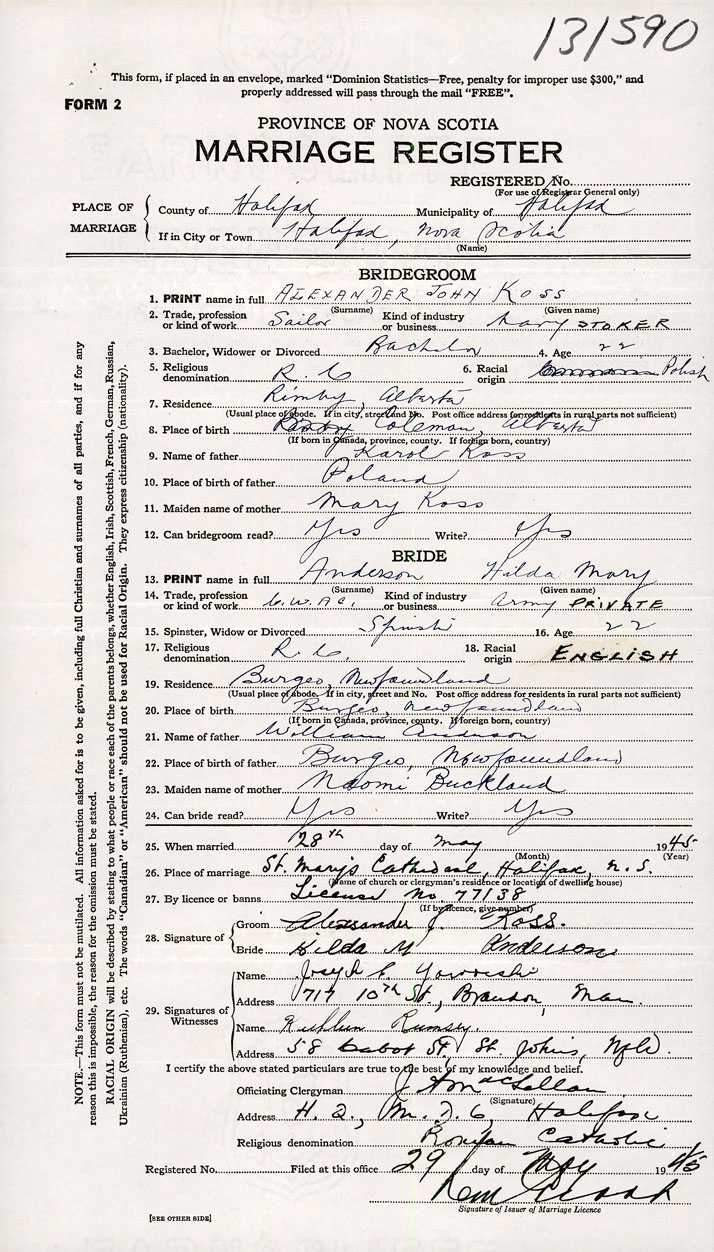 131590
This form, if placed in an envelope, marked "Dominion Statistics—Free, penalty for improper use $300," and
properly addressed will pass through the mail "FREE".
FORM 2
PROVINCE OF NOVA SCOTIA
MARRIAGE REGISTER
REGISTERED No.
(For use of Registrar General only)
PLACE OF MARRIAGE
County of Halifax Municipality of Halifax
If in City or Town Halifax, Nova Scotia
(Name)
BRIDEGROOM
1. PRINT name in full ALEXANDER JOHN KOSS
(Surname) (Given name)
2. Trade, profession or kind of work Sailor Kind of industry or business Navy STOKER
3. Bachelor, Widower or Divorced Bachelor 4. Age 22
5. Religious denomination R. C 6. Racial origin Polish
7. Residence Rimby, Alberta
(Usual place of abode. If in city, street and No. Post office address for residents in rural parts not sufficient)
8. Place of birth Coleman, Alberta
(If born in Canada, province, county. If foreign born, country)
9. Name of father Karol Koss
10. Place of birth of father Poland
11. Maiden name of mother Mary Koss
12. Can bridegroom read? Yes Write? Yes
BRIDE
13. PRINT name in full Anderson Hilda Mary
(Surname) (Given name)
14. Trade, profession or kind of work C.W.A.C. Kind of industry or business Army PRIVATE
15. Spinster, Widow or Divorced 16. Age 22
17. Religious denomination R. C. 18. Racial origin ENGLISH
19. Residence Burgeo, Newfoundland
(Usual place of abode. If in city, street and No. Post office address for residents in rural parts not sufficient)
20. Place of birth Burgeo, Newfoundland
(If born in Canada, province, county. If foreign born, country)
21. Name of father William Anderson
22. Place of birth of father Burgeo, Newfoundland
23. Maiden name of mother Naomi Buckland
24. Can bride read? Yes Write? Yes
25. When married 28th day of May 1945
(Month) (Year)
26. Place of marriage St. Mary's Cathedral, Halifax, N. S.
(Name of church or clergyman's residence or location of dwelling house)
27. By licence or banns License No. 77138
(If by licence, give number)
28. Signature of Groom Alexander J. Koss.
Bride Hilda M Anderson
29. Signatures of Witnesses
Name Joseph
Address 717 10th St., Brandon, Man.
Name Rumsey.
Address 58 Cabot St, St. John's, Nfld.
I certify the above stated particulars are true to the best of my knowledge and belief.
Officiating Clergyman J. A. MacLellan
(Signature)
Address H. Q., M. D. 6, Halifax
Religious denomination Roman Catholic
Registered No. Filed at this office 29 day of May 1945
Signature of Issuer of Marriage Licence
[SEE OTHER SIDE]
NOTE.—This form must not be mutilated. All information asked for is to be given, including full Christian and surnames of all parties, and if for any
reason this is impossible, the reason for the omission must be stated.
RACIAL ORIGIN will be described by stating to what people or race each of the parents belongs, whether English, Irish, Scottish, French, German, Russian,
Ukrainian (Ruthenian), etc. The words "Canadian" or "American" should not be used for Racial Origin. They express citizenship (nationality).